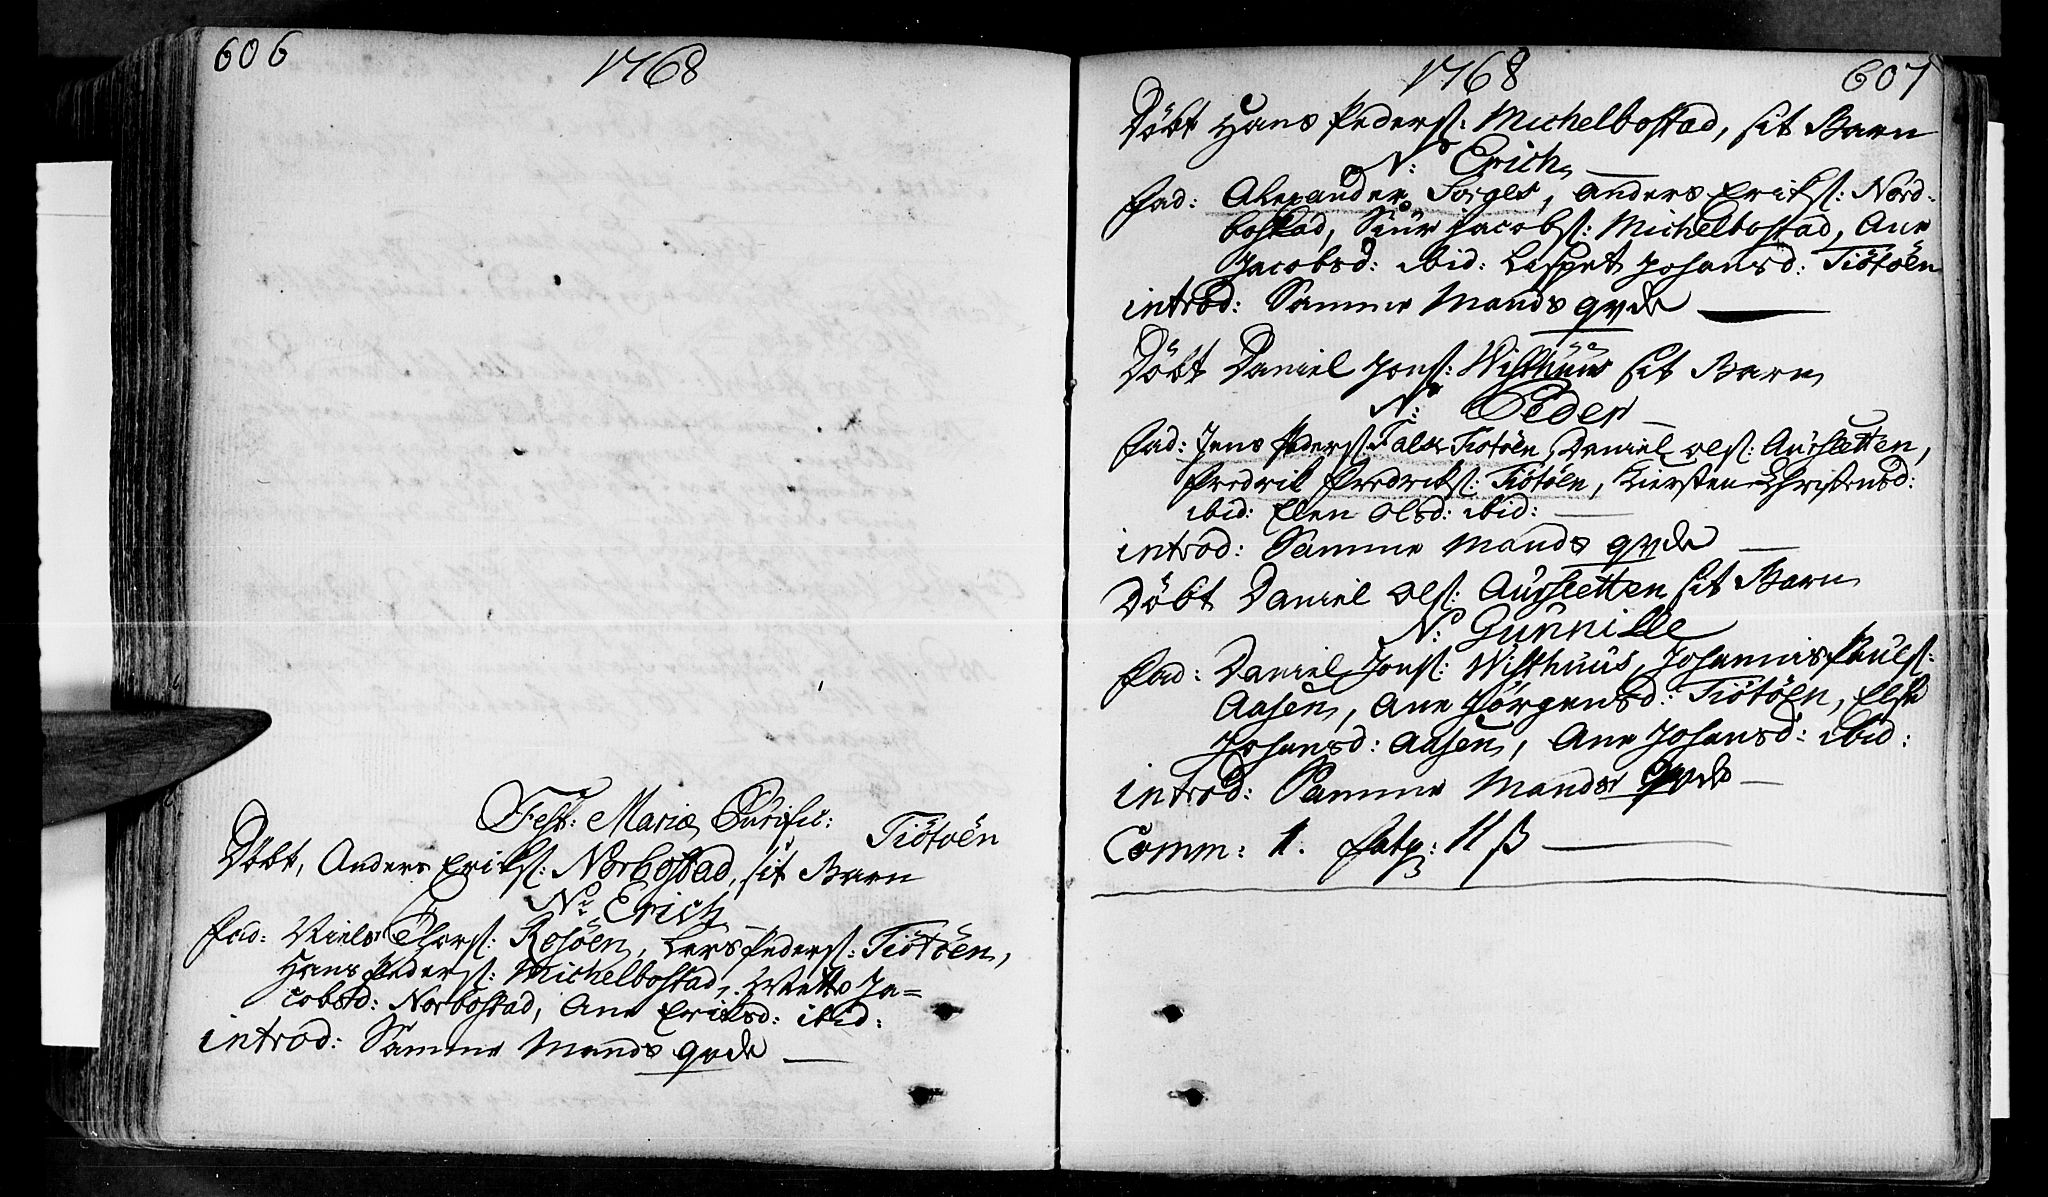 606
1768
Fest: Mariæ Purific:
Tiötöen
Döbt, Anders Eriks: Norbostad, sit Barn
N: Erich
Fad: Niels Thors: Rosöen, Lars Peders: Tiötöen,
Hans Peders: Michelbostad, Mette Ja=
cobsd: Norbostad, Ane Eriksd: ibid:
introd: Samme Mands qvde
1768
607
Döbt Hans Peders: Michelbostad, sit Barn
N: Erich
Fad: Alexander Sorges, Anders Eriks: Nord-
bostad, Siur Jacobs: Michelbostad, Ane
Jacobsd: ibid: Lispet Johansd: Tiötöen
introd: Samme Mands qvde
Döbt Daniel Jons: Wisthuus sit Barn
N: Peder
Fad: Jens Peders: Falch Tiötöen, Daniel Ols: Aursletten,
Fredrik Fredriks: Tiötöen, Kiersten Christensd:
ibid: Elen Olsd: ibid:
introd: Samme Mands qvde
Döbt Daniel Ols: Aursletten sit Barn
N: Gunnille
Fad: Daniel Jons: Wisthuus, Johannis Pauls:
Aasen, Ane Jörgensd: Tiötöen, Else
Johansd: Aasen, Ane Johansd: ibid:
introd: Samme Mands qvde
Comm: 1. 11 ß